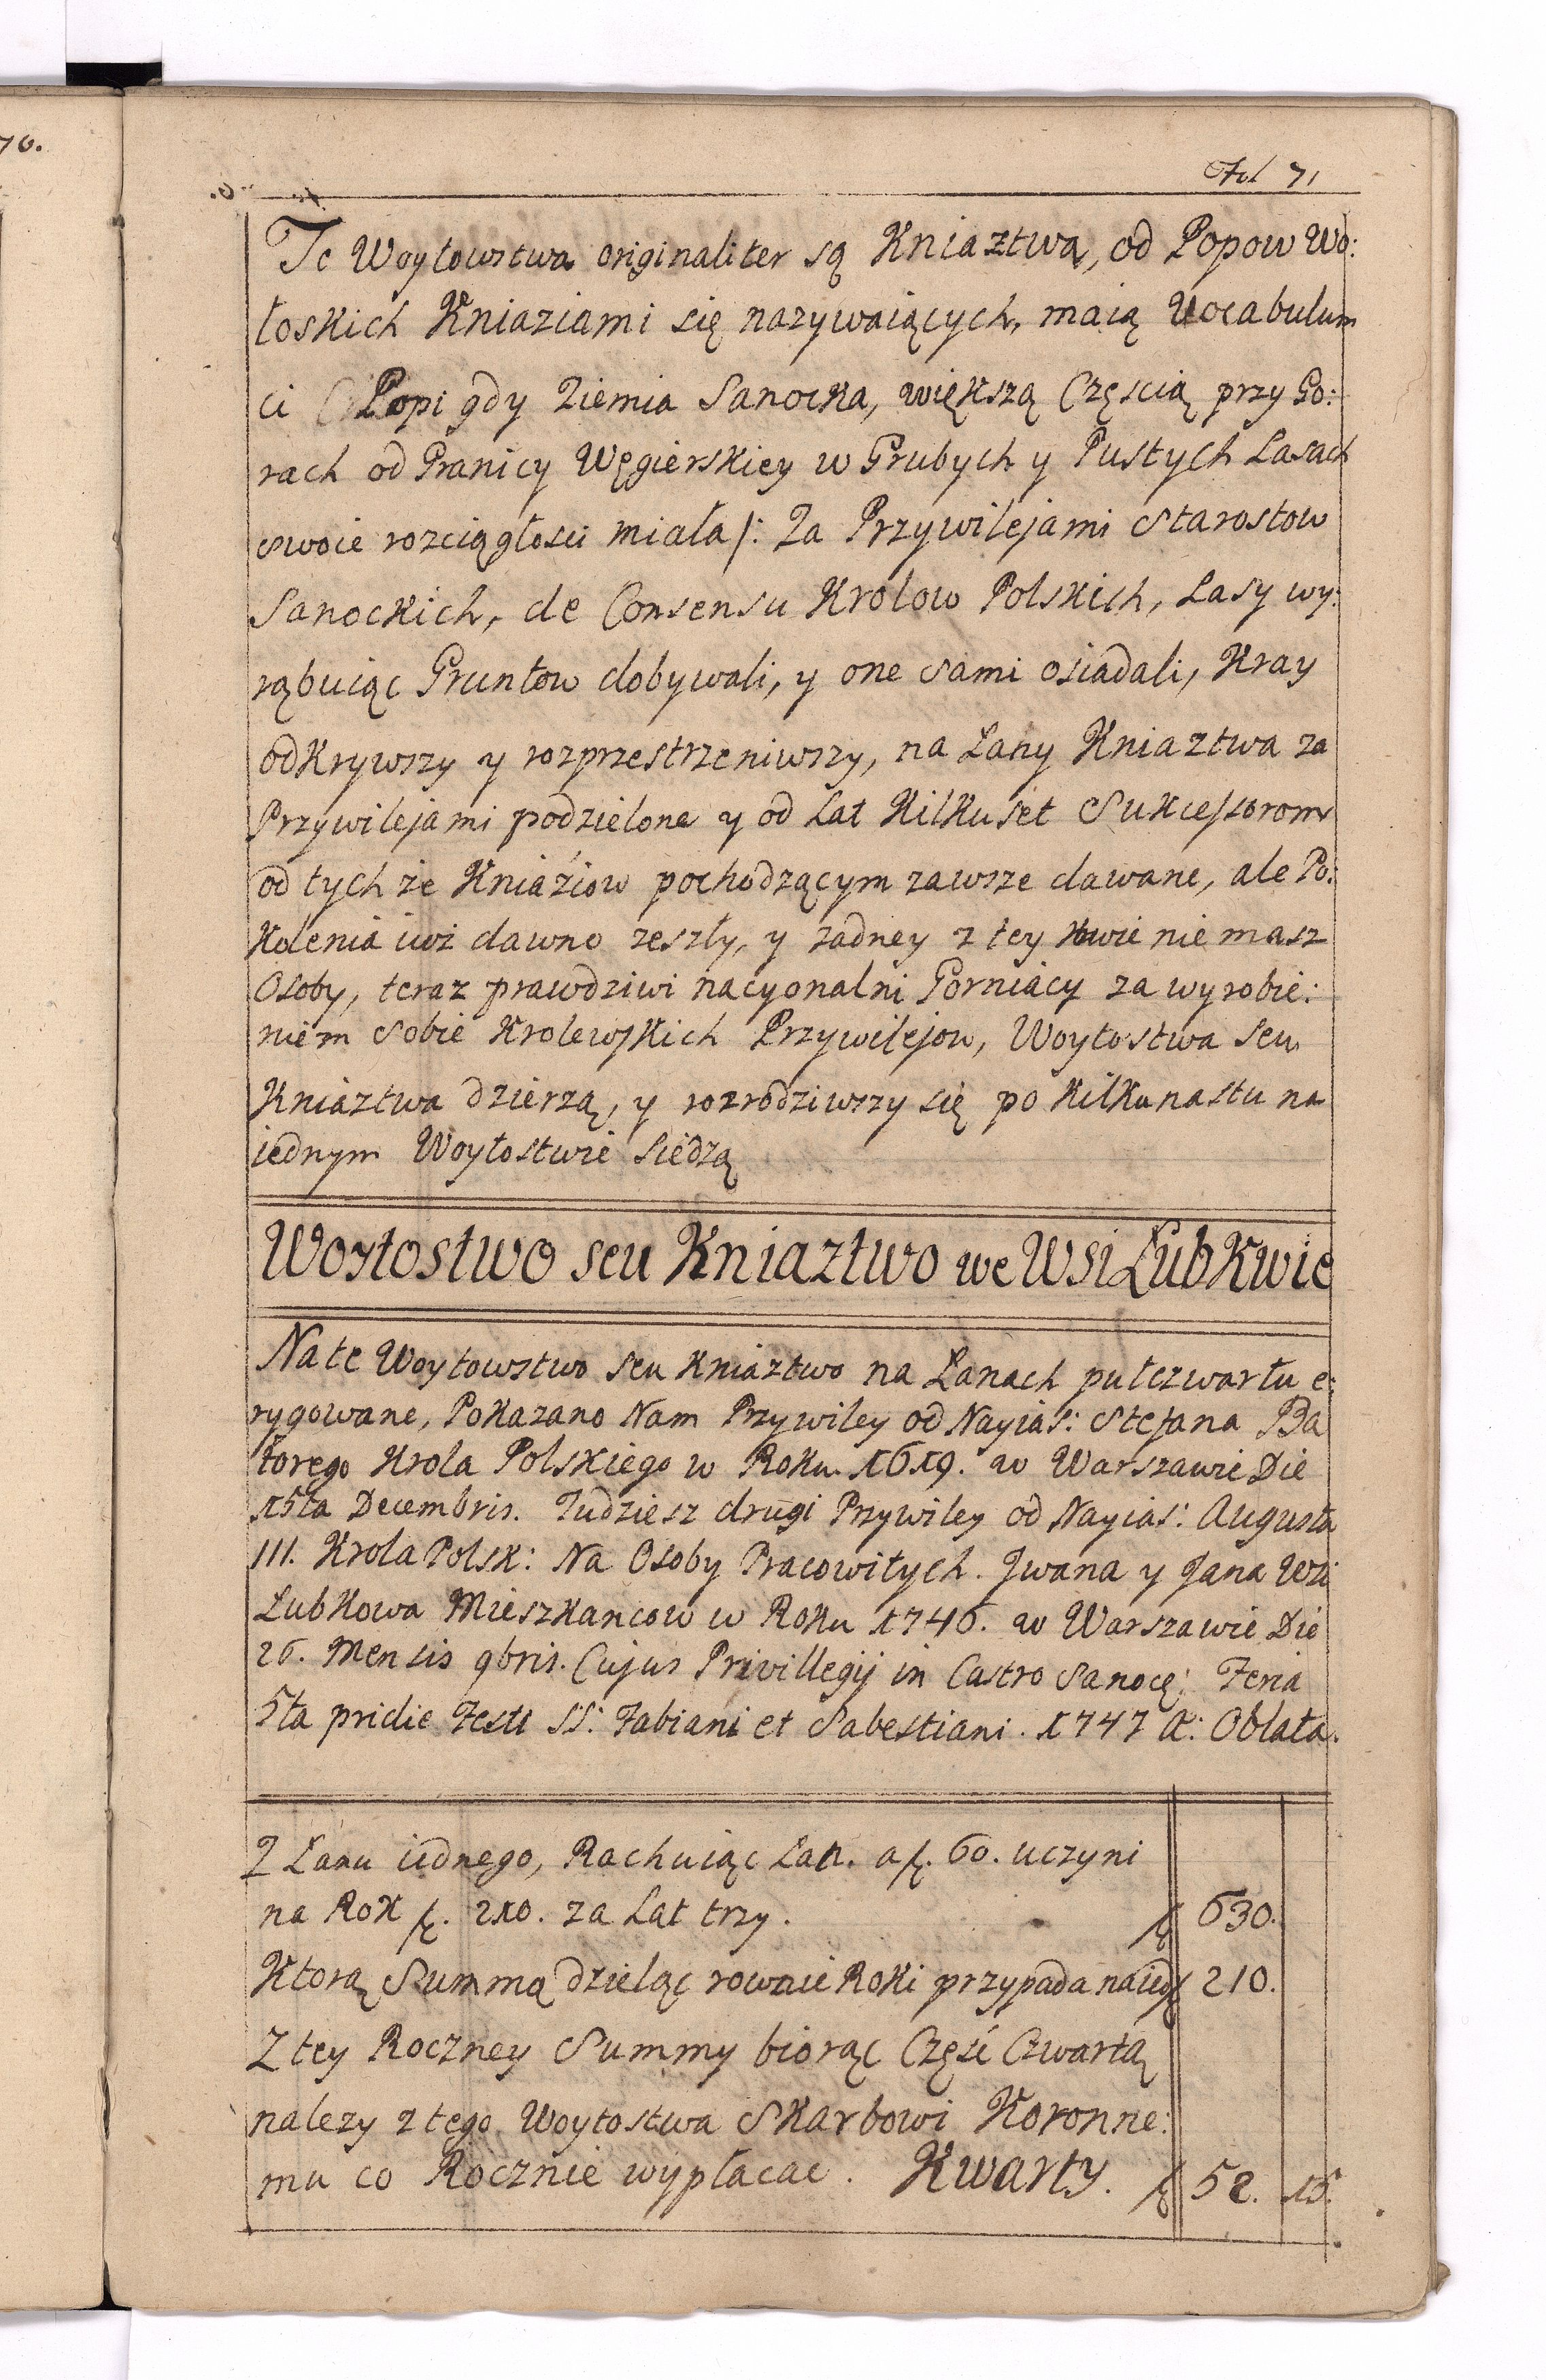 70.
Fol 71
Te Woytowstwa originaliter są Kniaztwa, od Popow Wo:
łoskich Kniaziami się nazywaiących, maią Vocabulum
ci Popi gdy Ziemia Sanocka, większą Częscią przy Go:
rach od Granicy Węgierskiey w Grubych y Pustych Lasach
swoie rozciągłosci miała /: Za Przywilejami Starostow
Sanockich, de Consensu Krolow Polskich, Lasy wy:
rąbuiąc Gruntow dobywali, y one sami osiadali, Kray
odkrywszy y rozprzestrzeniwszy, na Łany Kniaztwa za
Przywilejami podzielone y od Lat Kilkuset Sukcessorom
od tych że Kniaziow pochodzącym zawsze dawane, ale Po:
Kolenia iuż dawno zeszły, y żadney z tey Krwie nie masz
Osoby, teraz prawdziwi nacyonalni Gorniacy za wyrobie:
niem sobie Krolewskich Przywilejow, Woytostwa seu
Kniaztwa dzierżą, y rozrodziwszy się po Kilkunastu na
iednym Woytostwie siedzą
Woytostwo seu Kniaztwo we Wsi Łubkwie
Na te Woytowstwo seu Kniaztwo na Łanach pułczwartu e:
rygowane, Pokazano Nam Przywiley od Nayias: Stefana Ba
torego Krola Polskiego w Roku 1619. w Warszawie Die
15ta Decembris. Tudziesz drugi Przywiley od Nayias: Augusta
III. Krola Polsk: Na Osoby Pracowitych. Jwana y Jana Wsi
Łubkowa Mieszkancow w Roku 1746. w Warszawie Die
26. Mensis 9bris. Cujus Privillegij in Castro Sanocę: Feria
5ta pridie Festi SS: Fabiani et Sabestiani. 1747 A: Oblata.
Z Łanu iednego, Rachuiąc Łan. a fł. 60. uczyni
na Rok fł. 210. za Lat trzy. fł 630.
Ktorą Summą dzieląc rownie Roki przypada na ied: fł 210.
Z tey Roczney Summy biorąc Częsć Czwartą
nalezy z tego Woytostwa Skarbowi Koronne:
mu co Rocznie wypłacac. Kwarty. fł 52. 15.